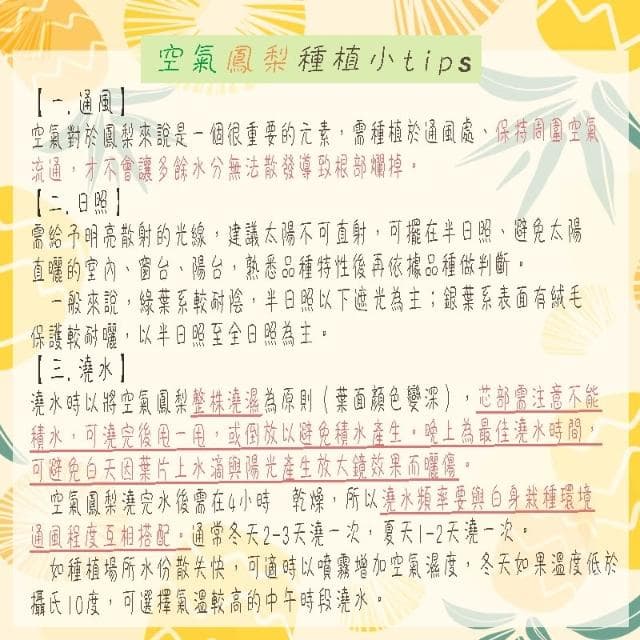 空氣鳳梨種植小tips
【一.通風】
空氣對於鳳梨來說是一個很重要的元素，需種植於通風處、保持周圍空氣
流通，才不會讓多餘水分無法散發導致根部爛掉。
【二.日照】
需給予明亮散射的光線，建議太陽不可直射，可擺在半日照、避免太陽
直曬的室內、窗台、陽台，熟悉品種特性後再依據品種做判斷。
一般來說，綠葉系較耐陰，半日照以下遮光為主；銀葉系表面有絨毛
保護較耐曬，以半日照至全日照為主。
【三.澆水】
澆水時以將空氣鳳梨整株澆濕為原則（葉面顏色變深），芯部需注意不能
積水，可澆完後甩一甩，或倒放以避免積水產生。晚上為最佳澆水時間，
可避免白天因葉片上水滴與陽光產生放大鏡效果而曬傷。
空氣鳳梨澆完水後需在4小時 乾燥，所以澆水頻率要與自身栽種環境
通風程度互相搭配。通常冬天2-3天澆一次，夏天1-2天澆一次。
如種植場所水份散失快，可適時以噴霧增加空氣濕度，冬天如果溫度低於
攝氏10度，可選擇氣溫較高的中午時段澆水。